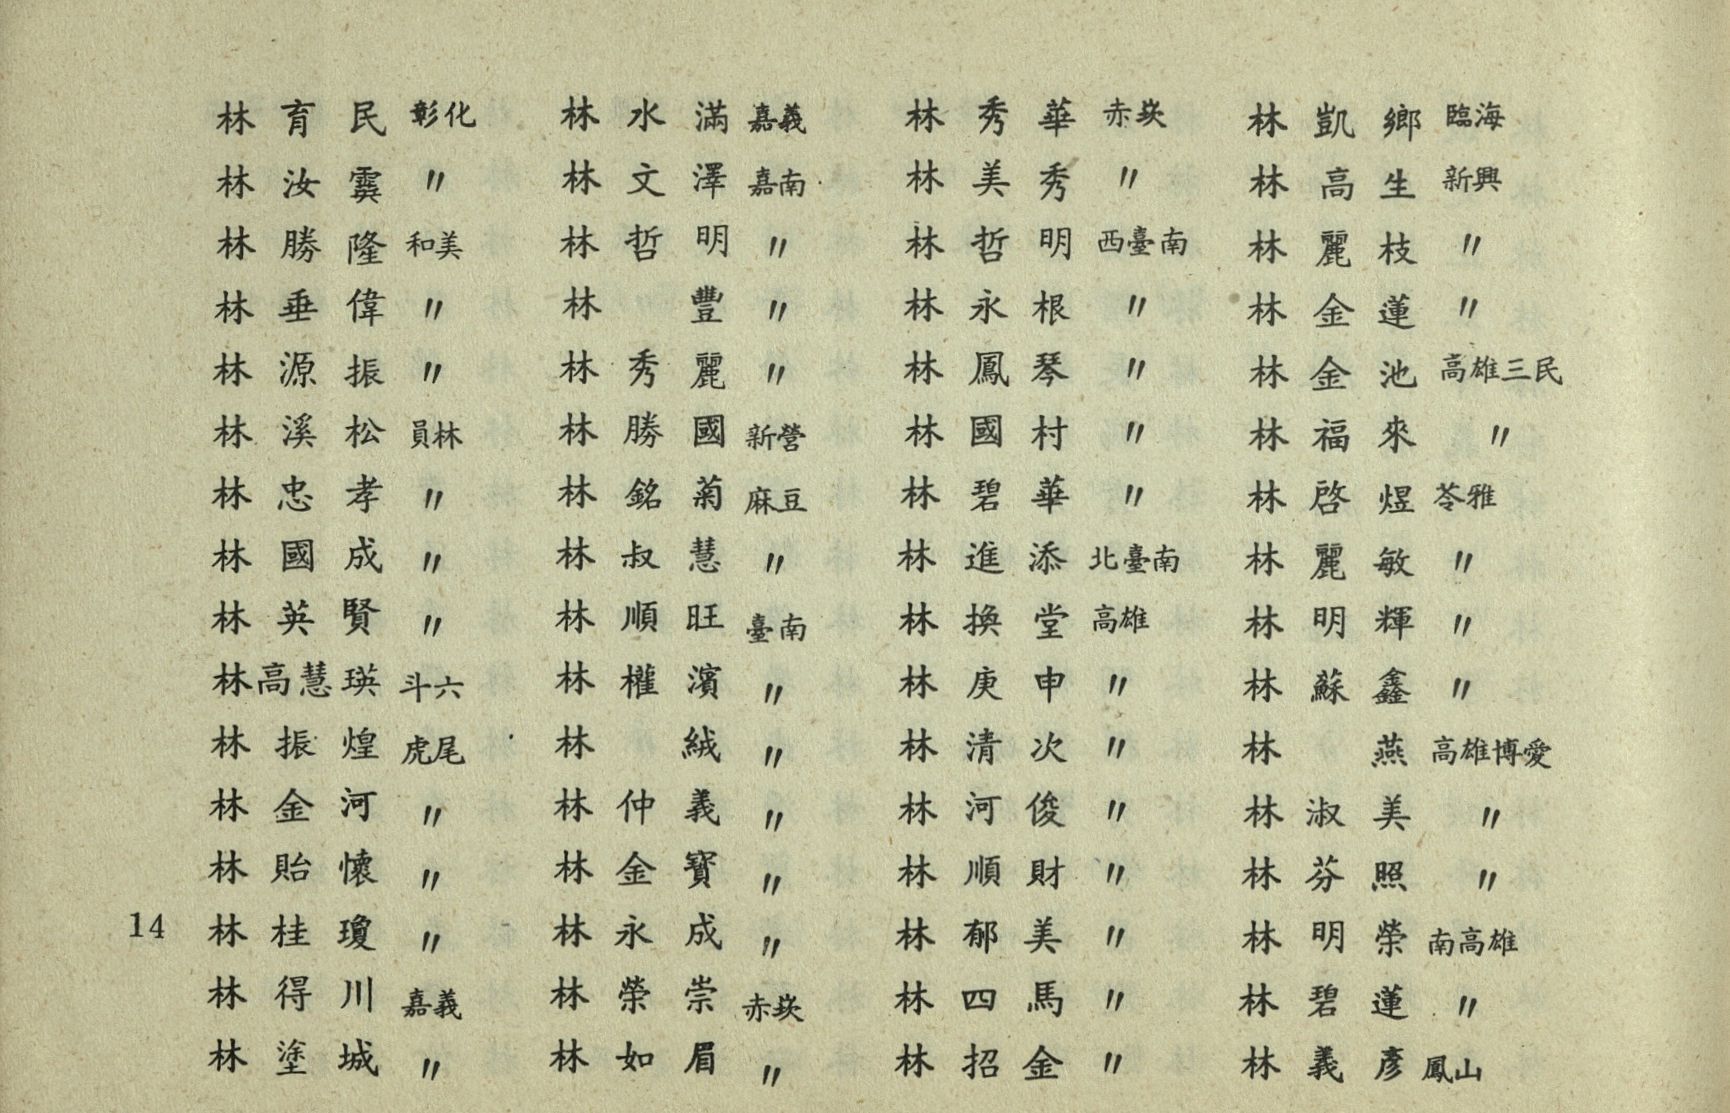 林育民 彰化 林水滿 嘉義 林秀華 赤崁 林凱鄉 臨海
林汝霙 〃 林文澤 嘉南 林美秀 〃 林高生 新興
林勝隆 和美 林哲明 〃 林哲明 西臺南 林麗枝 〃
林垂偉 〃 林豐 〃 林永根 〃 林金蓮 〃
林源振 〃 林秀麗 〃 林鳳琴 〃 林金池 高雄三民
林溪松 員林 林勝國 新營 林國村 〃 林福來 〃
林忠孝 〃 林銘菊 麻豆 林碧華 〃 林啓煜 苓雅
林國成 〃 林叔慧 〃 林進添 北臺南 林麗敏 〃
林英賢 〃 林順旺 臺南 林換堂 高雄 林明輝 〃
林高慧瑛 斗六 林權濱 〃 林庚申 〃 林蘇鑫 〃
林振煌 虎尾 林絨 〃 林清次 〃 林燕 高雄博愛
林金河 〃 林仲義 〃 林河俊 〃 林淑美 〃
林貽懷 〃 林金寶 〃 林順財 〃 林芬照 〃
14 林桂瓊 〃 林永成 〃 林郁美 〃 林明榮 南高雄
林得川 嘉義 林榮崇 赤崁 林四馬 〃 林碧蓮 〃
林塗城 〃 林如眉 〃 林招金 〃 林義彥 鳳山